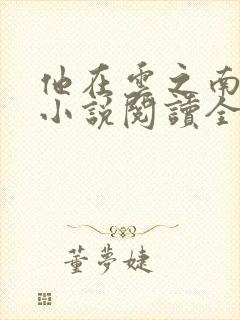 他在雲之南
小説閱讀全
董夢婕